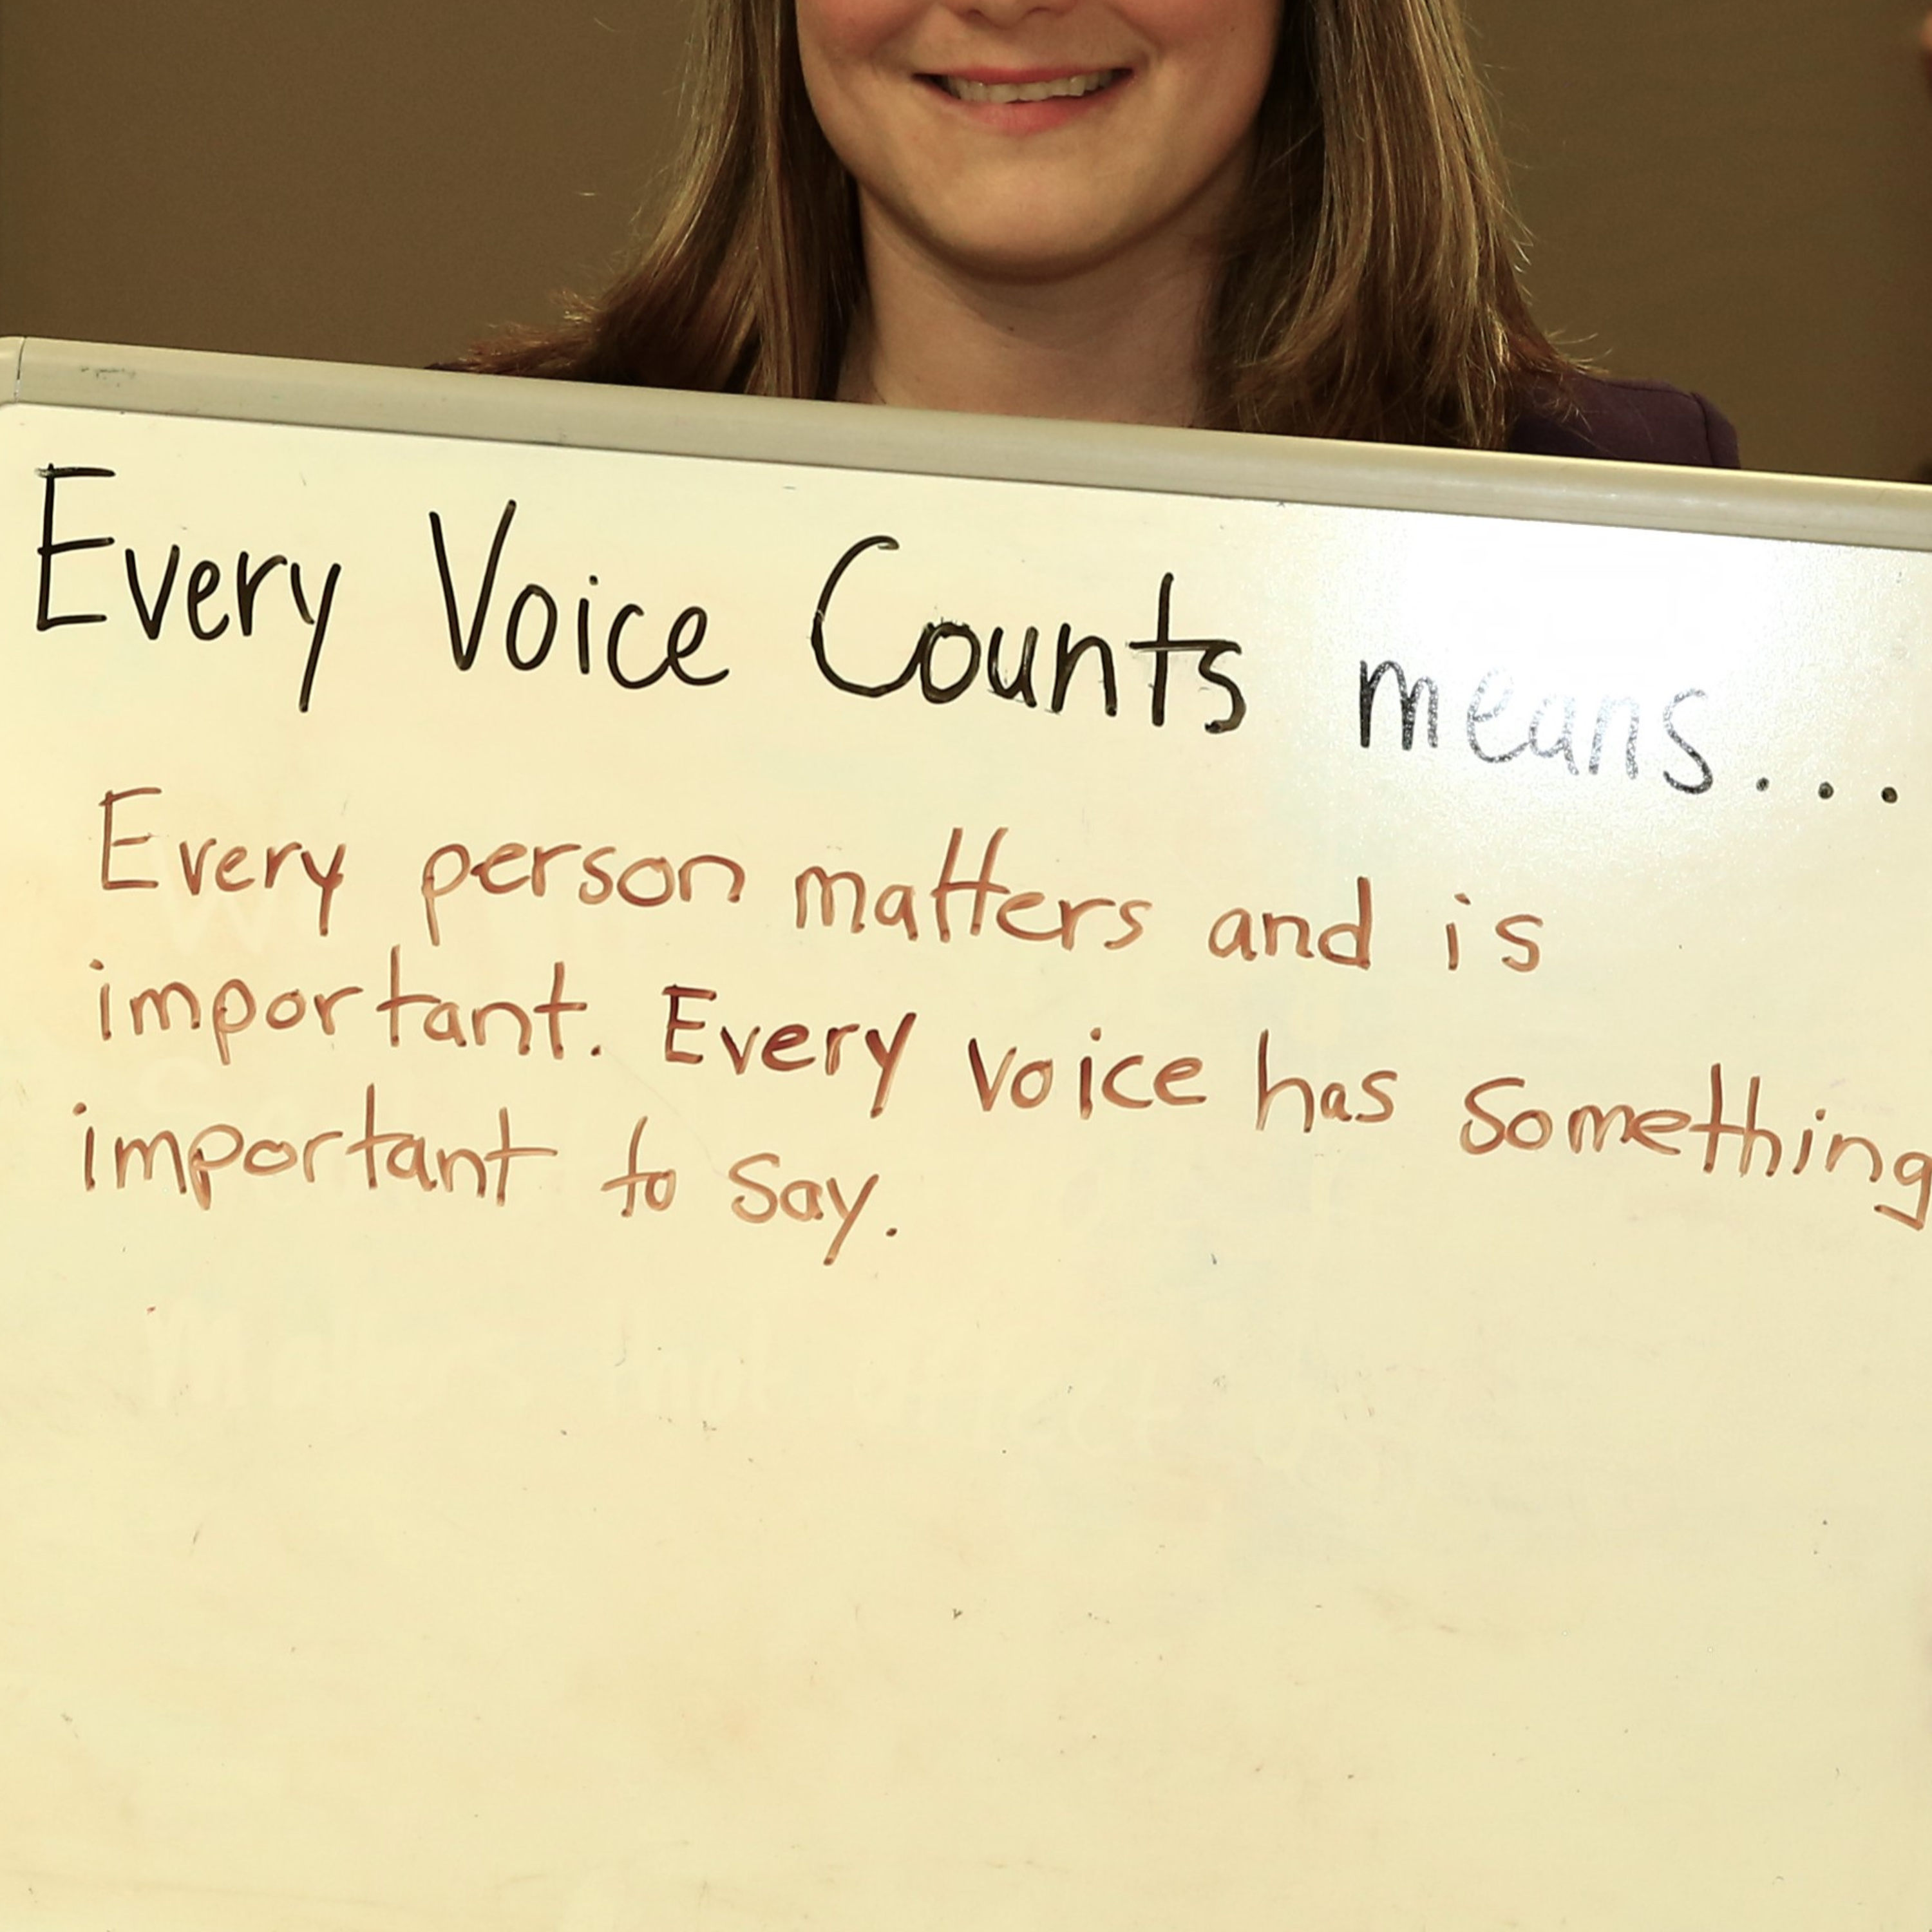 Every Voice Counts means...
Every person matters and is
important. Every voice has something
important to say.